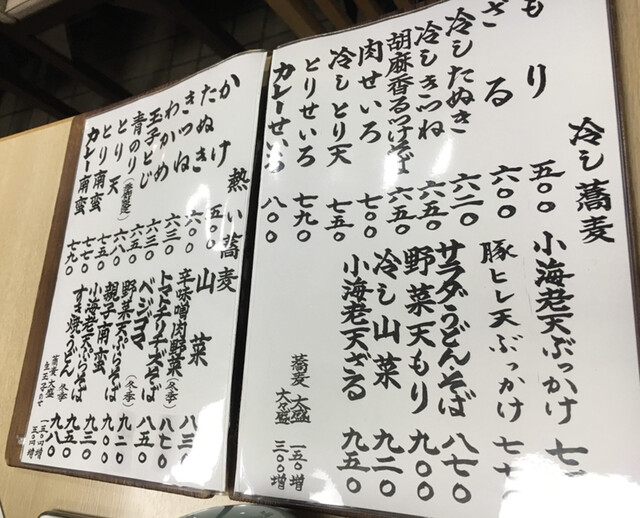 冷し蕎麦
もり 五〇〇
ざる 六〇〇
冷したぬき 六二〇
冷しきつね 六五〇
胡麻香るつけそば 六五〇
肉せいろ 七〇〇
冷しとり天 七五〇
とりせいろ 七九〇
カレーせいろ 八〇〇
小海老天ぶっかけ
豚ヒレ天ぶっかけ
サラダうどんそば 八七〇
野菜天もり 九〇〇
冷し山菜 九二〇
小海老天ざる 九五〇
蕎麦 大盛 一五〇増
大々盛 三〇〇増
熱い蕎麦
かけ 五〇〇
たぬき 六〇〇
きつね 六三〇
わかめ 六三〇
玉子とじ
青のり
とり天
とり南蛮 七七〇
カレー南蛮 七九〇
山菜 八三〇
辛味噌肉野菜(冬季)
トマトチリチーズそば
ベジゴマ(冬季)
野菜天ぷらそば
親子南蛮
小海老天ぷらそば 九五〇
すき焼うどん(冬季) 九八〇
蕎麦大盛 一五〇増
生玉子 五〇増